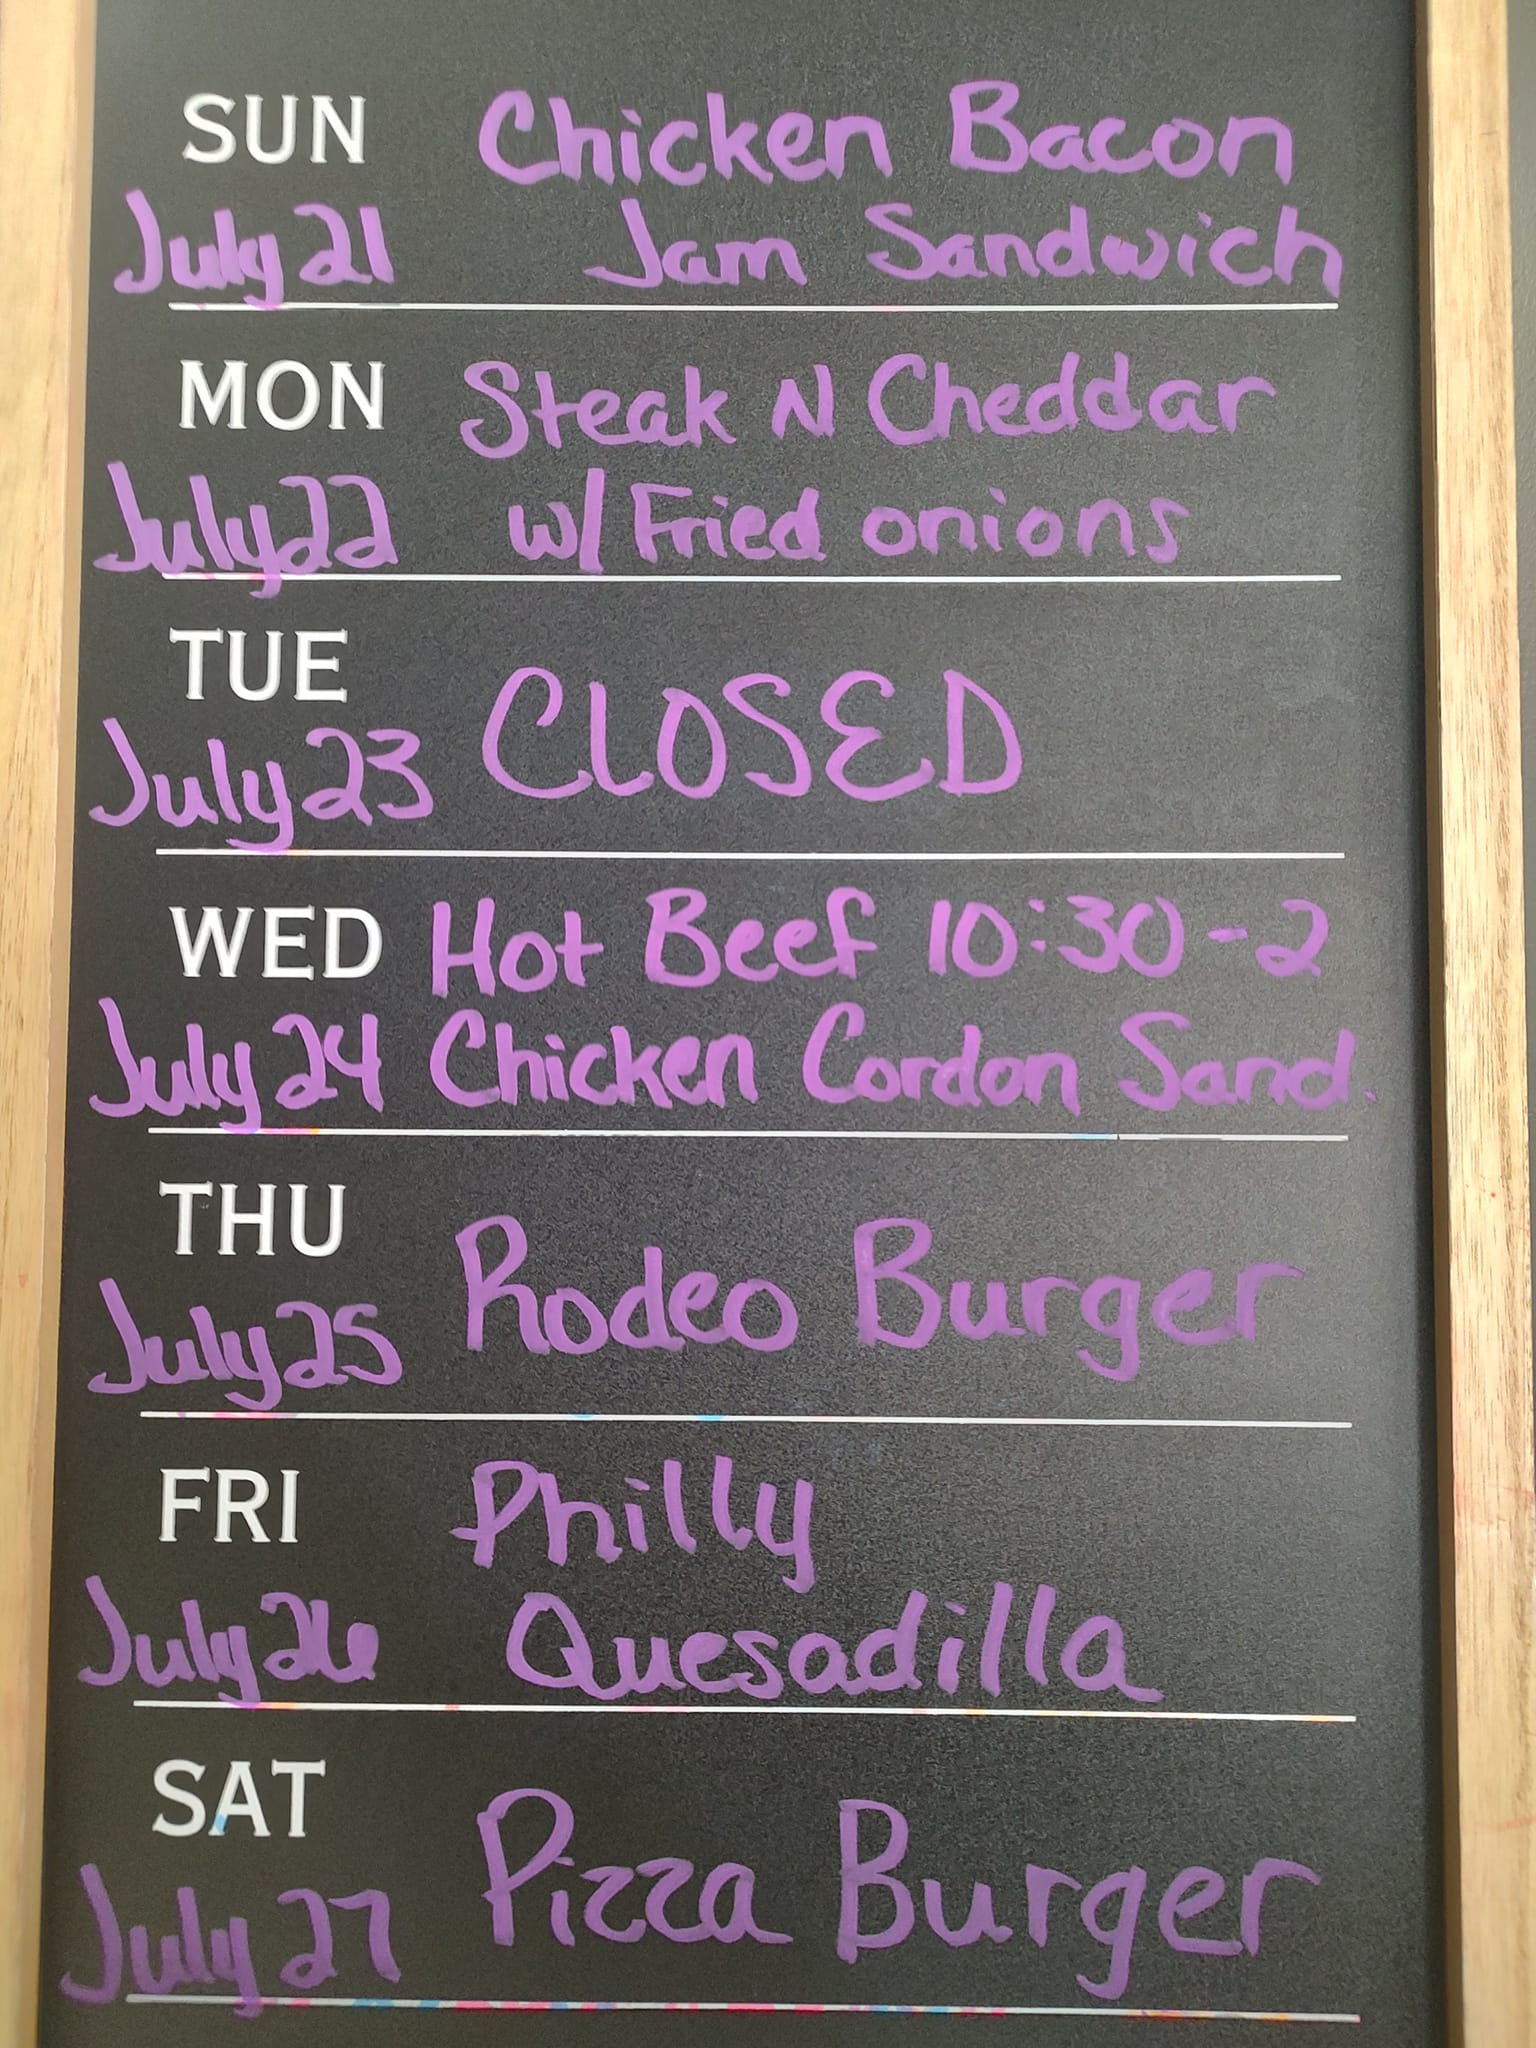 SUN Chicken Bacon
July 21 Jam Sandwich
MON Steak N Cheddar
July 22 w/ Fried onions
TUE
CLOSED
July 23
WED Hot Beef 10:30-2
July 24 Chicken Cordon Sand.
THU
Rodeo Burger
July 25
FRI Philly
July 26 Quesadilla
SAT
Pizza Burger
July 27